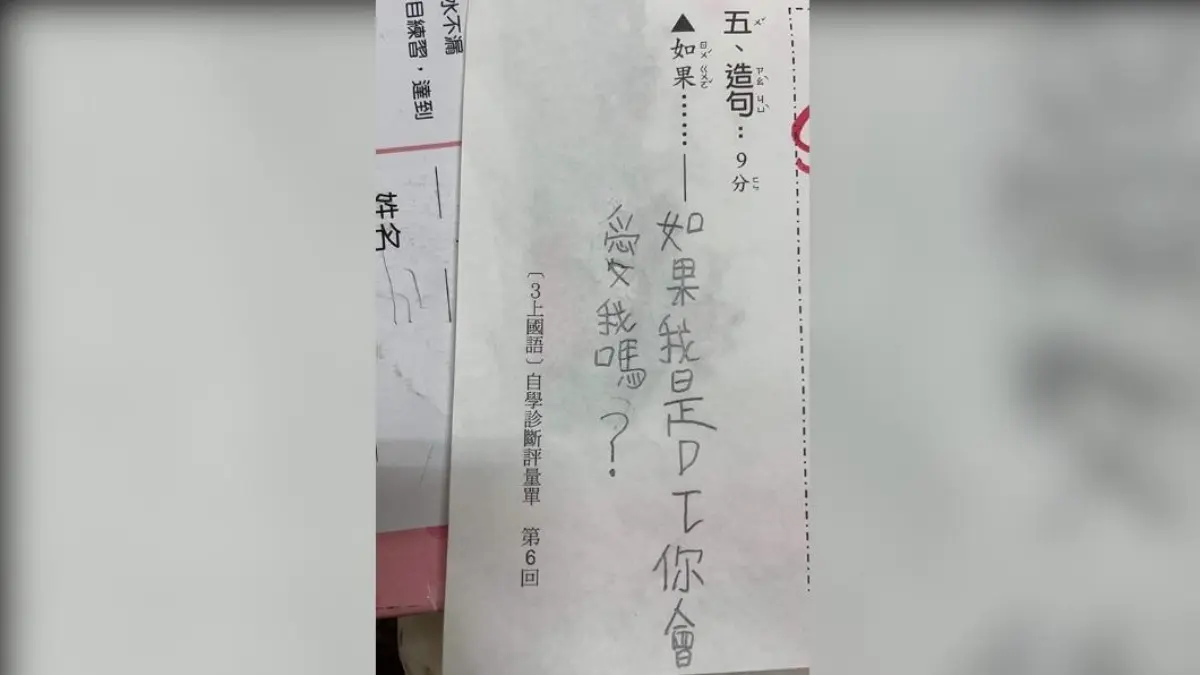 五、造句：9分
▲如果……
如果我是DT你會
愛我嗎？
〔3上國語〕自學診斷評量單 第6回
水不漏
目練習，達到
姓名